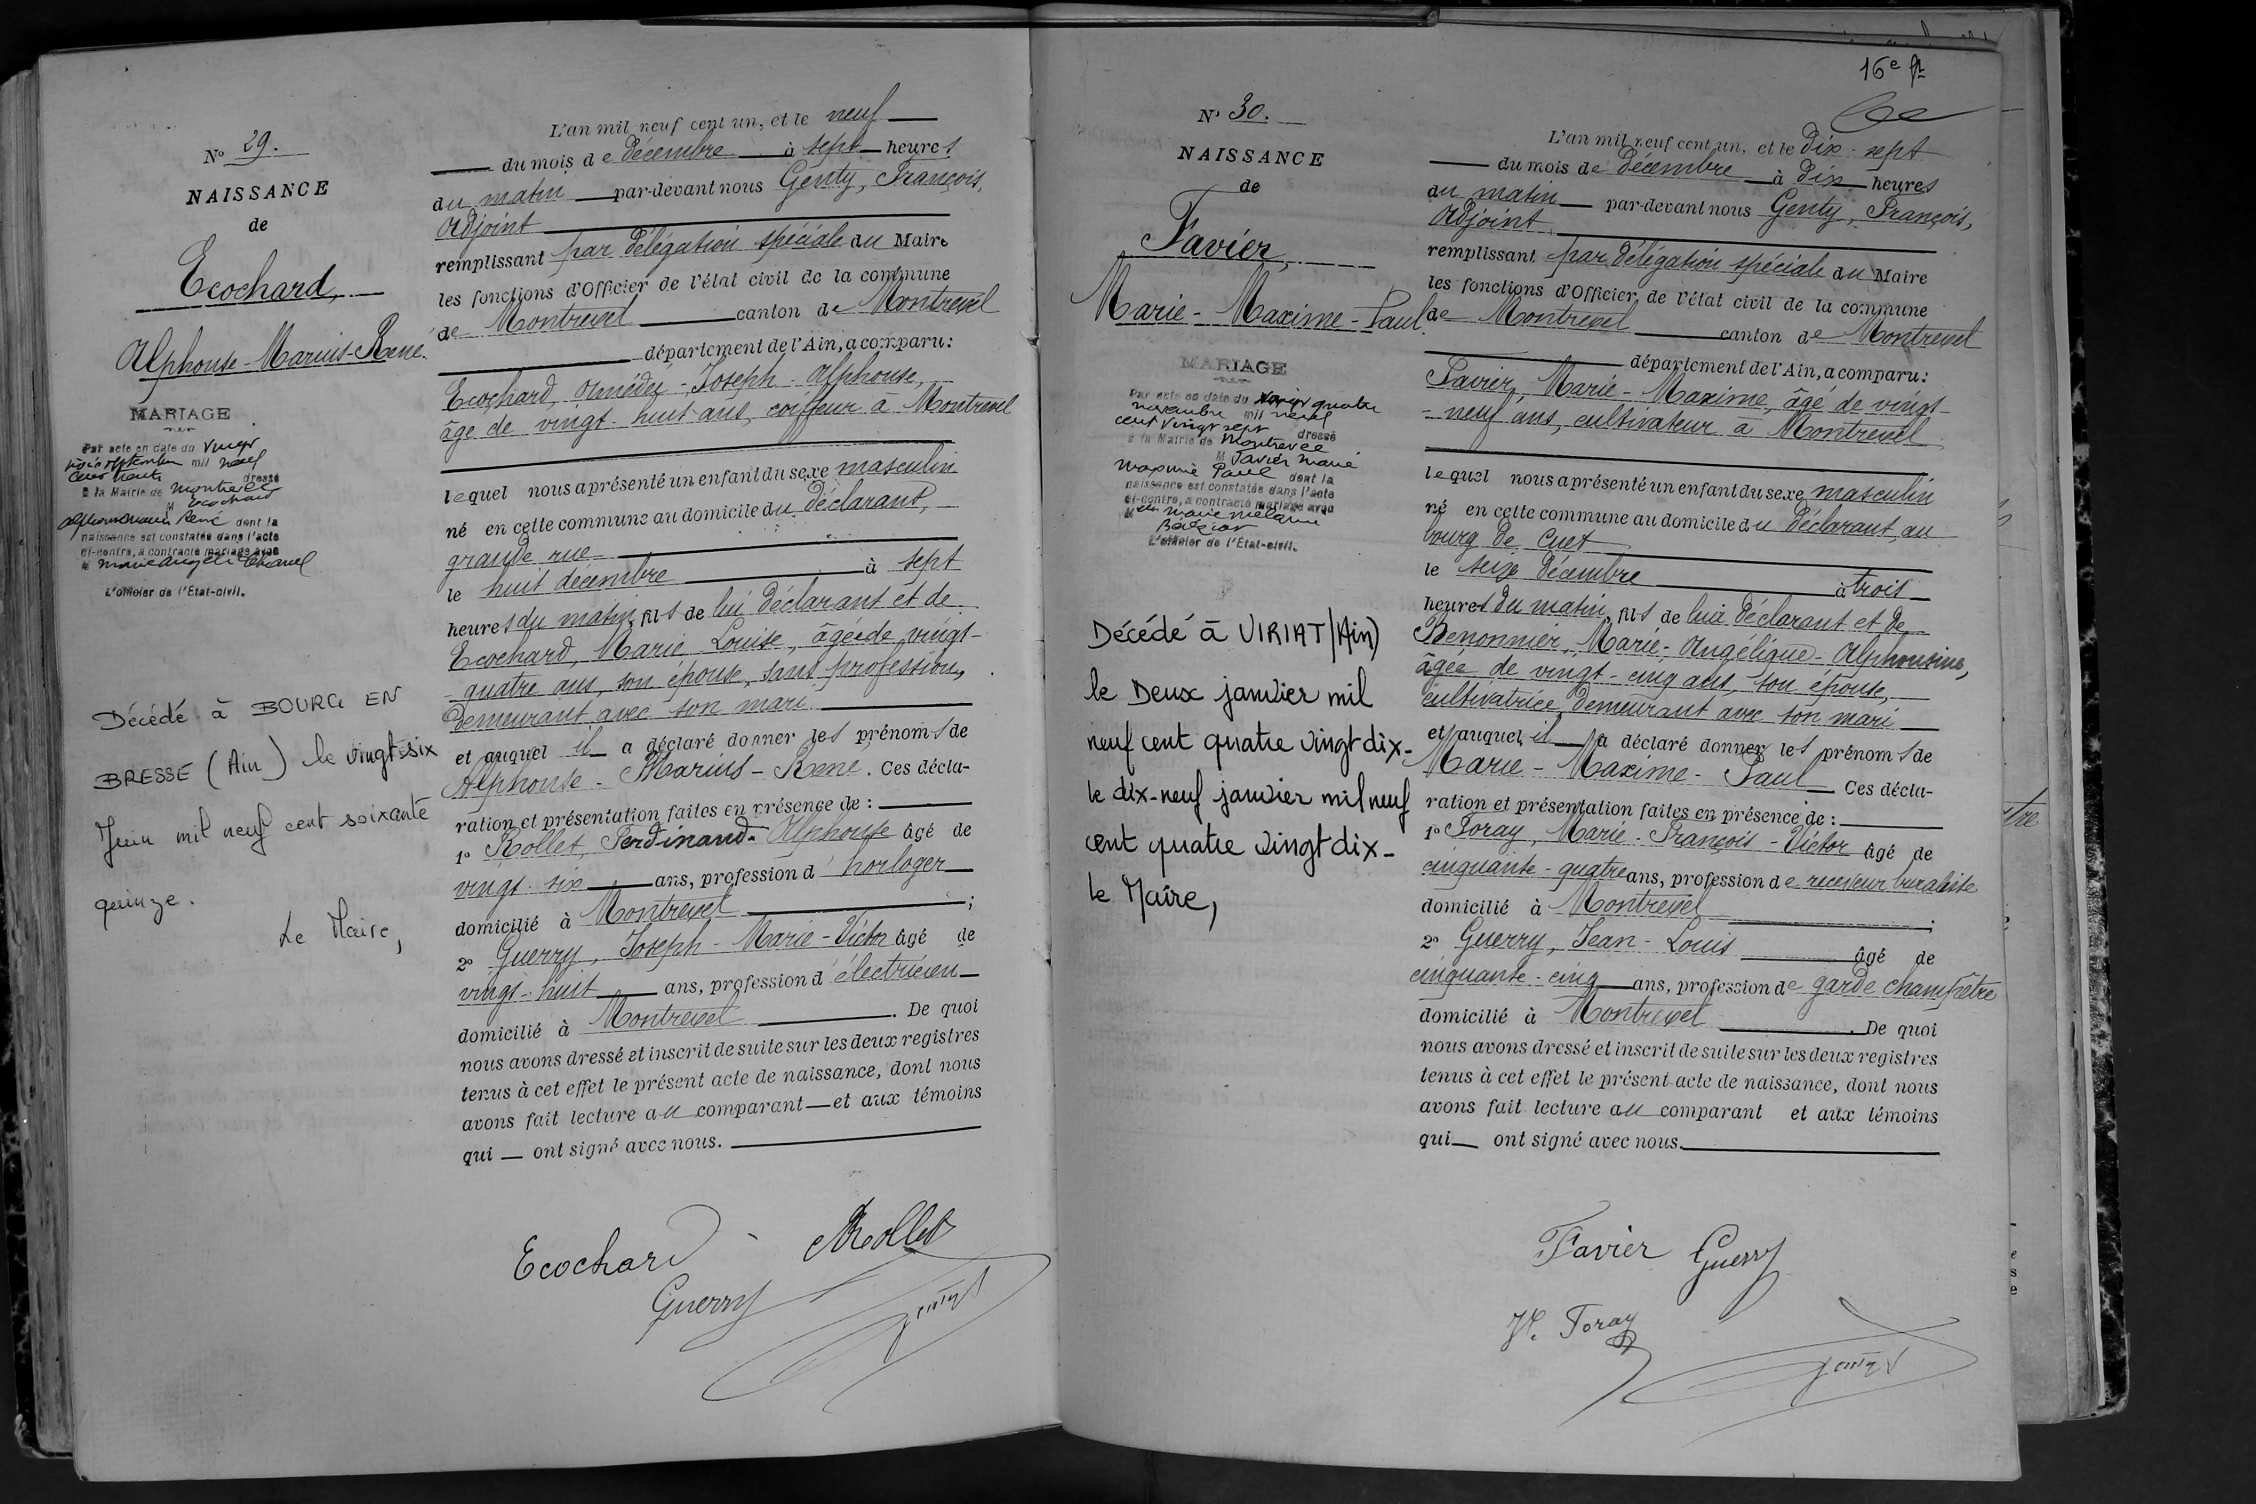 N° 29.
NAISSANCE
de
Ecochard,
Alphonse-Marius-René.
MARIAGE
Par acte en date du vingt
septembre mil neuf
cent trente dressé
à la Mairie de Montrevel
M Ecochard
Alphonse Marius René dont la
naissance est constatée dans l'acte
ci-contre, a contracté mariage avec
M Marie Angèle Chanel
L'officier de l'Etat-civil.
Décédé à BOURG EN
BRESSE (Ain) le vingt-six
Juin mil neuf cent soixante
quinze.
Le Maire,
L'an mil neuf cent un, et le neuf
du mois de Décembre à sept heures
du matin par-devant nous Genty, François,
adjoint
remplissant par délégation spéciale du Maire
les fonctions d'Officier de l'état civil de la commune
de Montrevel canton de Montrevel
département de l'Ain, a comparu:
Ecochard, Amédée-Joseph-Alphonse,
âgé de vingt-huit ans, coiffeur à Montrevel
lequel nous a présenté un enfant du sexe masculin
né en cette commune au domicile du déclarant,
grande rue
le huit décembre à sept
heures du matin, fils de lui déclarant et de
Ecochard, Marie Louise, âgée de vingt-
-quatre ans, son épouse, sans profession,
demeurant avec son mari
et auquel il a déclaré donner les prénoms de
Alphonse-Marius-René. Ces décla-
ration et présentation faites en présence de :
1° Rollet, Ferdinand-Alphonse âgé de
vingt-six ans, profession d'horloger
domicilié à Montrevel ;
2° Guerry, Joseph-Marie-Victor âgé de
vingt-huit ans, profession d'électricien
domicilié à Montrevel . De quoi
nous avons dressé et inscrit de suite sur les deux registres
tenus à cet effet le présent acte de naissance, dont nous
avons fait lecture au comparant et aux témoins
qui ont signé avec nous.
Ecochard Rollet
Guerry
Genty
16e ft
N° 30.
NAISSANCE
de
Favier,
Marie-Maxime-Paul.
MARIAGE
Par acte en date du vingt quatre
novembre mil neuf
cent vingt sept dressé
à la Mairie de Montrevel
M Favier Marie
Maxime Paul dont la
naissance est constatée dans l'acte
ci-contre, a contracté mariage avec
M elle Marie Mélanie
L'officier de l'Etat-civil.
Décédé à VIRIAT (Ain)
le Deux janvier mil
neuf cent quatre vingt dix-
le dix-neuf janvier mil neuf
cent quatre vingt dix-
le Maire,
L'an mil neuf cent un, et le dix-sept
du mois de Décembre à dix heures
du matin par-devant nous Genty, François,
adjoint
remplissant par délégation spéciale du Maire
les fonctions d'Officier de l'état civil de la commune
de Montrevel canton de Montrevel
département de l'Ain, a comparu:
Favier, Marie-Maxime, âgé de vingt-
-neuf ans, cultivateur à Montrevel
lequel nous a présenté un enfant du sexe masculin
né en cette commune au domicile du déclarant, au
bourg de Cuet
le seize Décembre à trois
heures du matin, fils de lui déclarant et de
Marie-Angélique-Alphonsine,
âgée de vingt-cinq ans, son épouse,
cultivatrice, demeurant avec son mari
et auquel il a déclaré donner les prénoms de
Marie-Maxime-Paul Ces décla-
ration et présentation faites en présence de :
1° Foray, Marie-François-Victor âgé de
cinquante-quatre ans, profession de receveur buraliste
domicilié à Montrevel ;
2° Guerry, Jean-Louis âgé de
cinquante-cinq ans, profession de garde champêtre
domicilié à Montrevel . De quoi
nous avons dressé et inscrit de suite sur les deux registres
tenus à cet effet le présent acte de naissance, dont nous
avons fait lecture au comparant et aux témoins
qui ont signé avec nous.
Favier Guerry
V. Foray
Genty